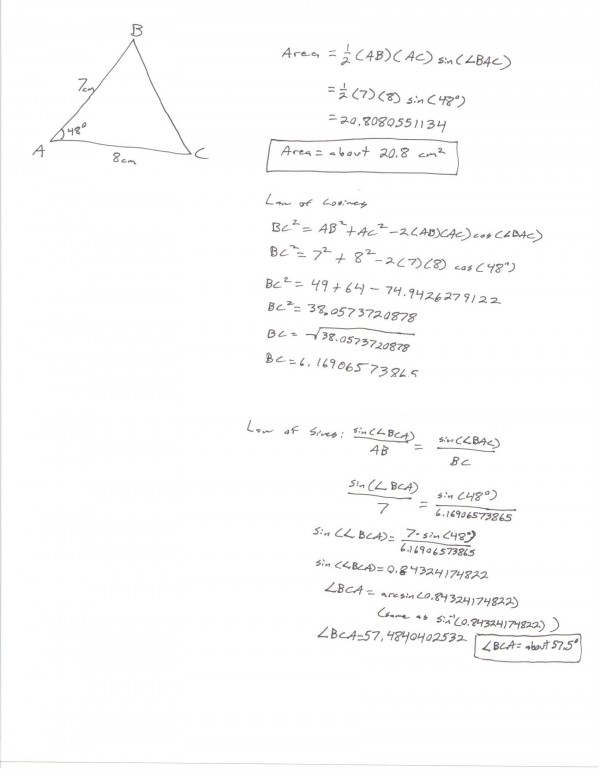 B
7cm
48°
A
8cm
C
Area = 1/2 (AB)(AC) sin(∠BAC)
= 1/2 (7)(8) sin(48°)
= 20.8080551134
Area = about 20.8 cm²
Law of Cosines
BC² = AB² + AC² - 2(AB)(AC) cos(∠BAC)
BC² = 7² + 8² - 2(7)(8) cos(48°)
BC² = 49 + 64 - 74.9426279122
BC² = 38.0573720878
BC = √38.0573720878
BC = 6.16906573865
Law of Sines: sin(∠BCA)/AB = sin(∠BAC)/BC
sin(∠BCA)/7 = sin(48°)/6.16906573865
sin(∠BCA) = 7·sin(48°)/6.16906573865
sin(∠BCA) = 0.84324174822
∠BCA = arcsin(0.84324174822)
(same as sin⁻¹(0.84324174822))
∠BCA = 57.4840402532
∠BCA = about 57.5°